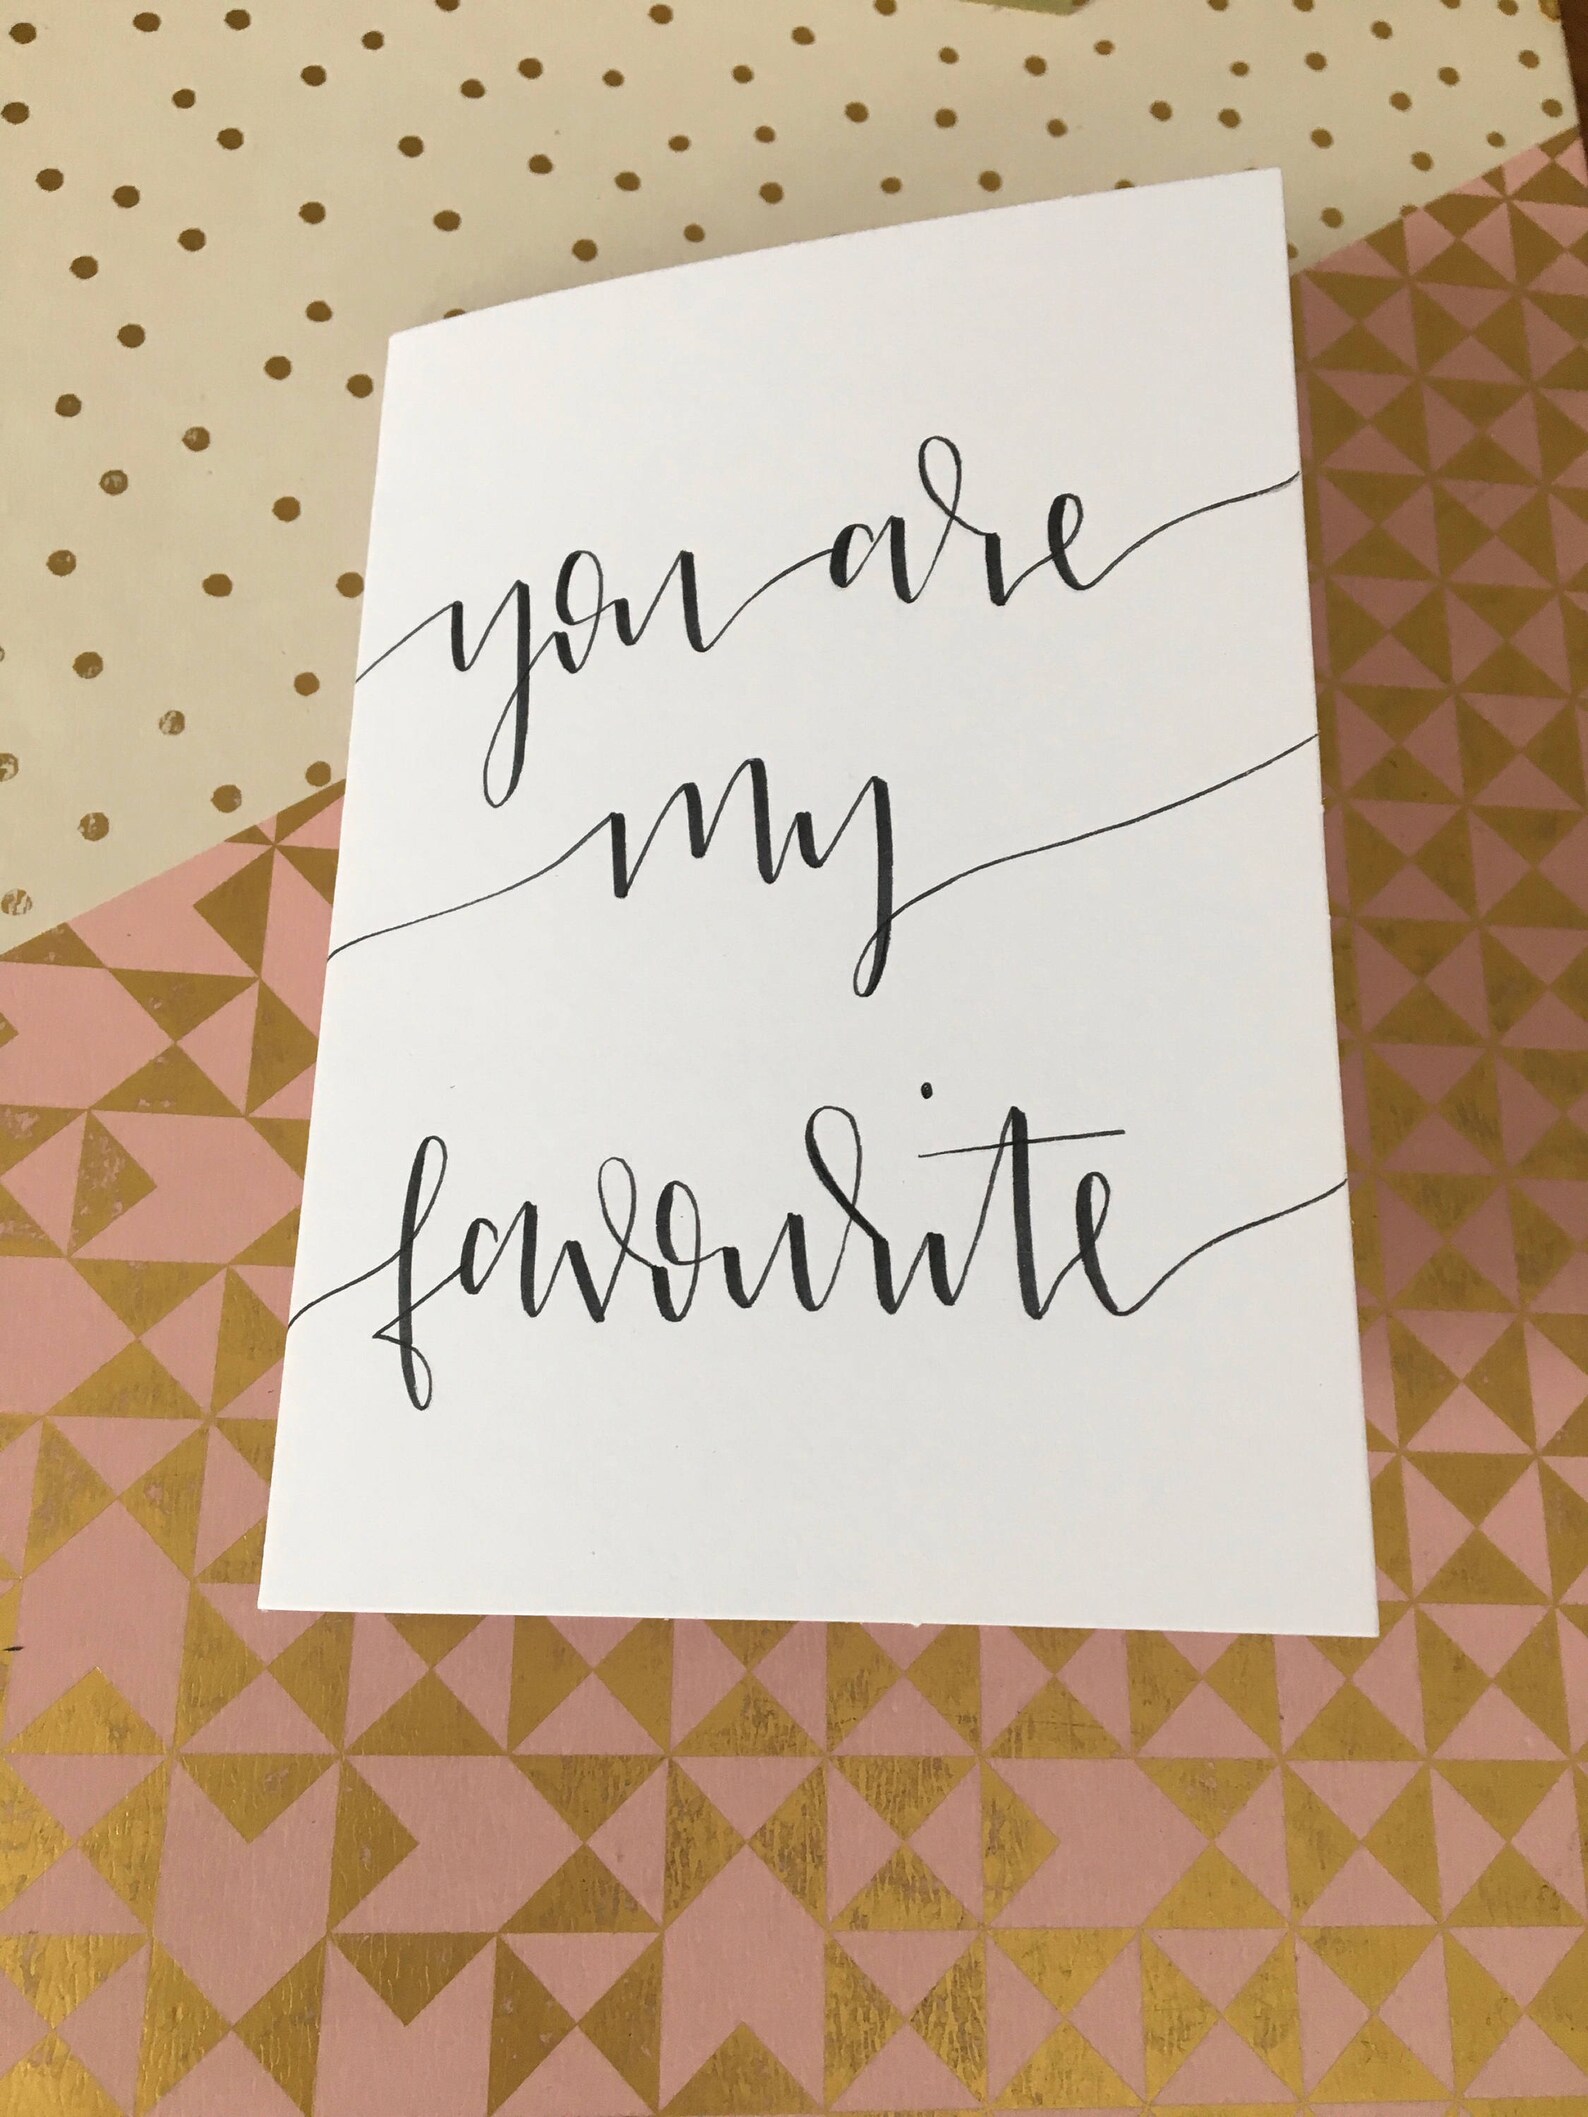 you are
my
favourite